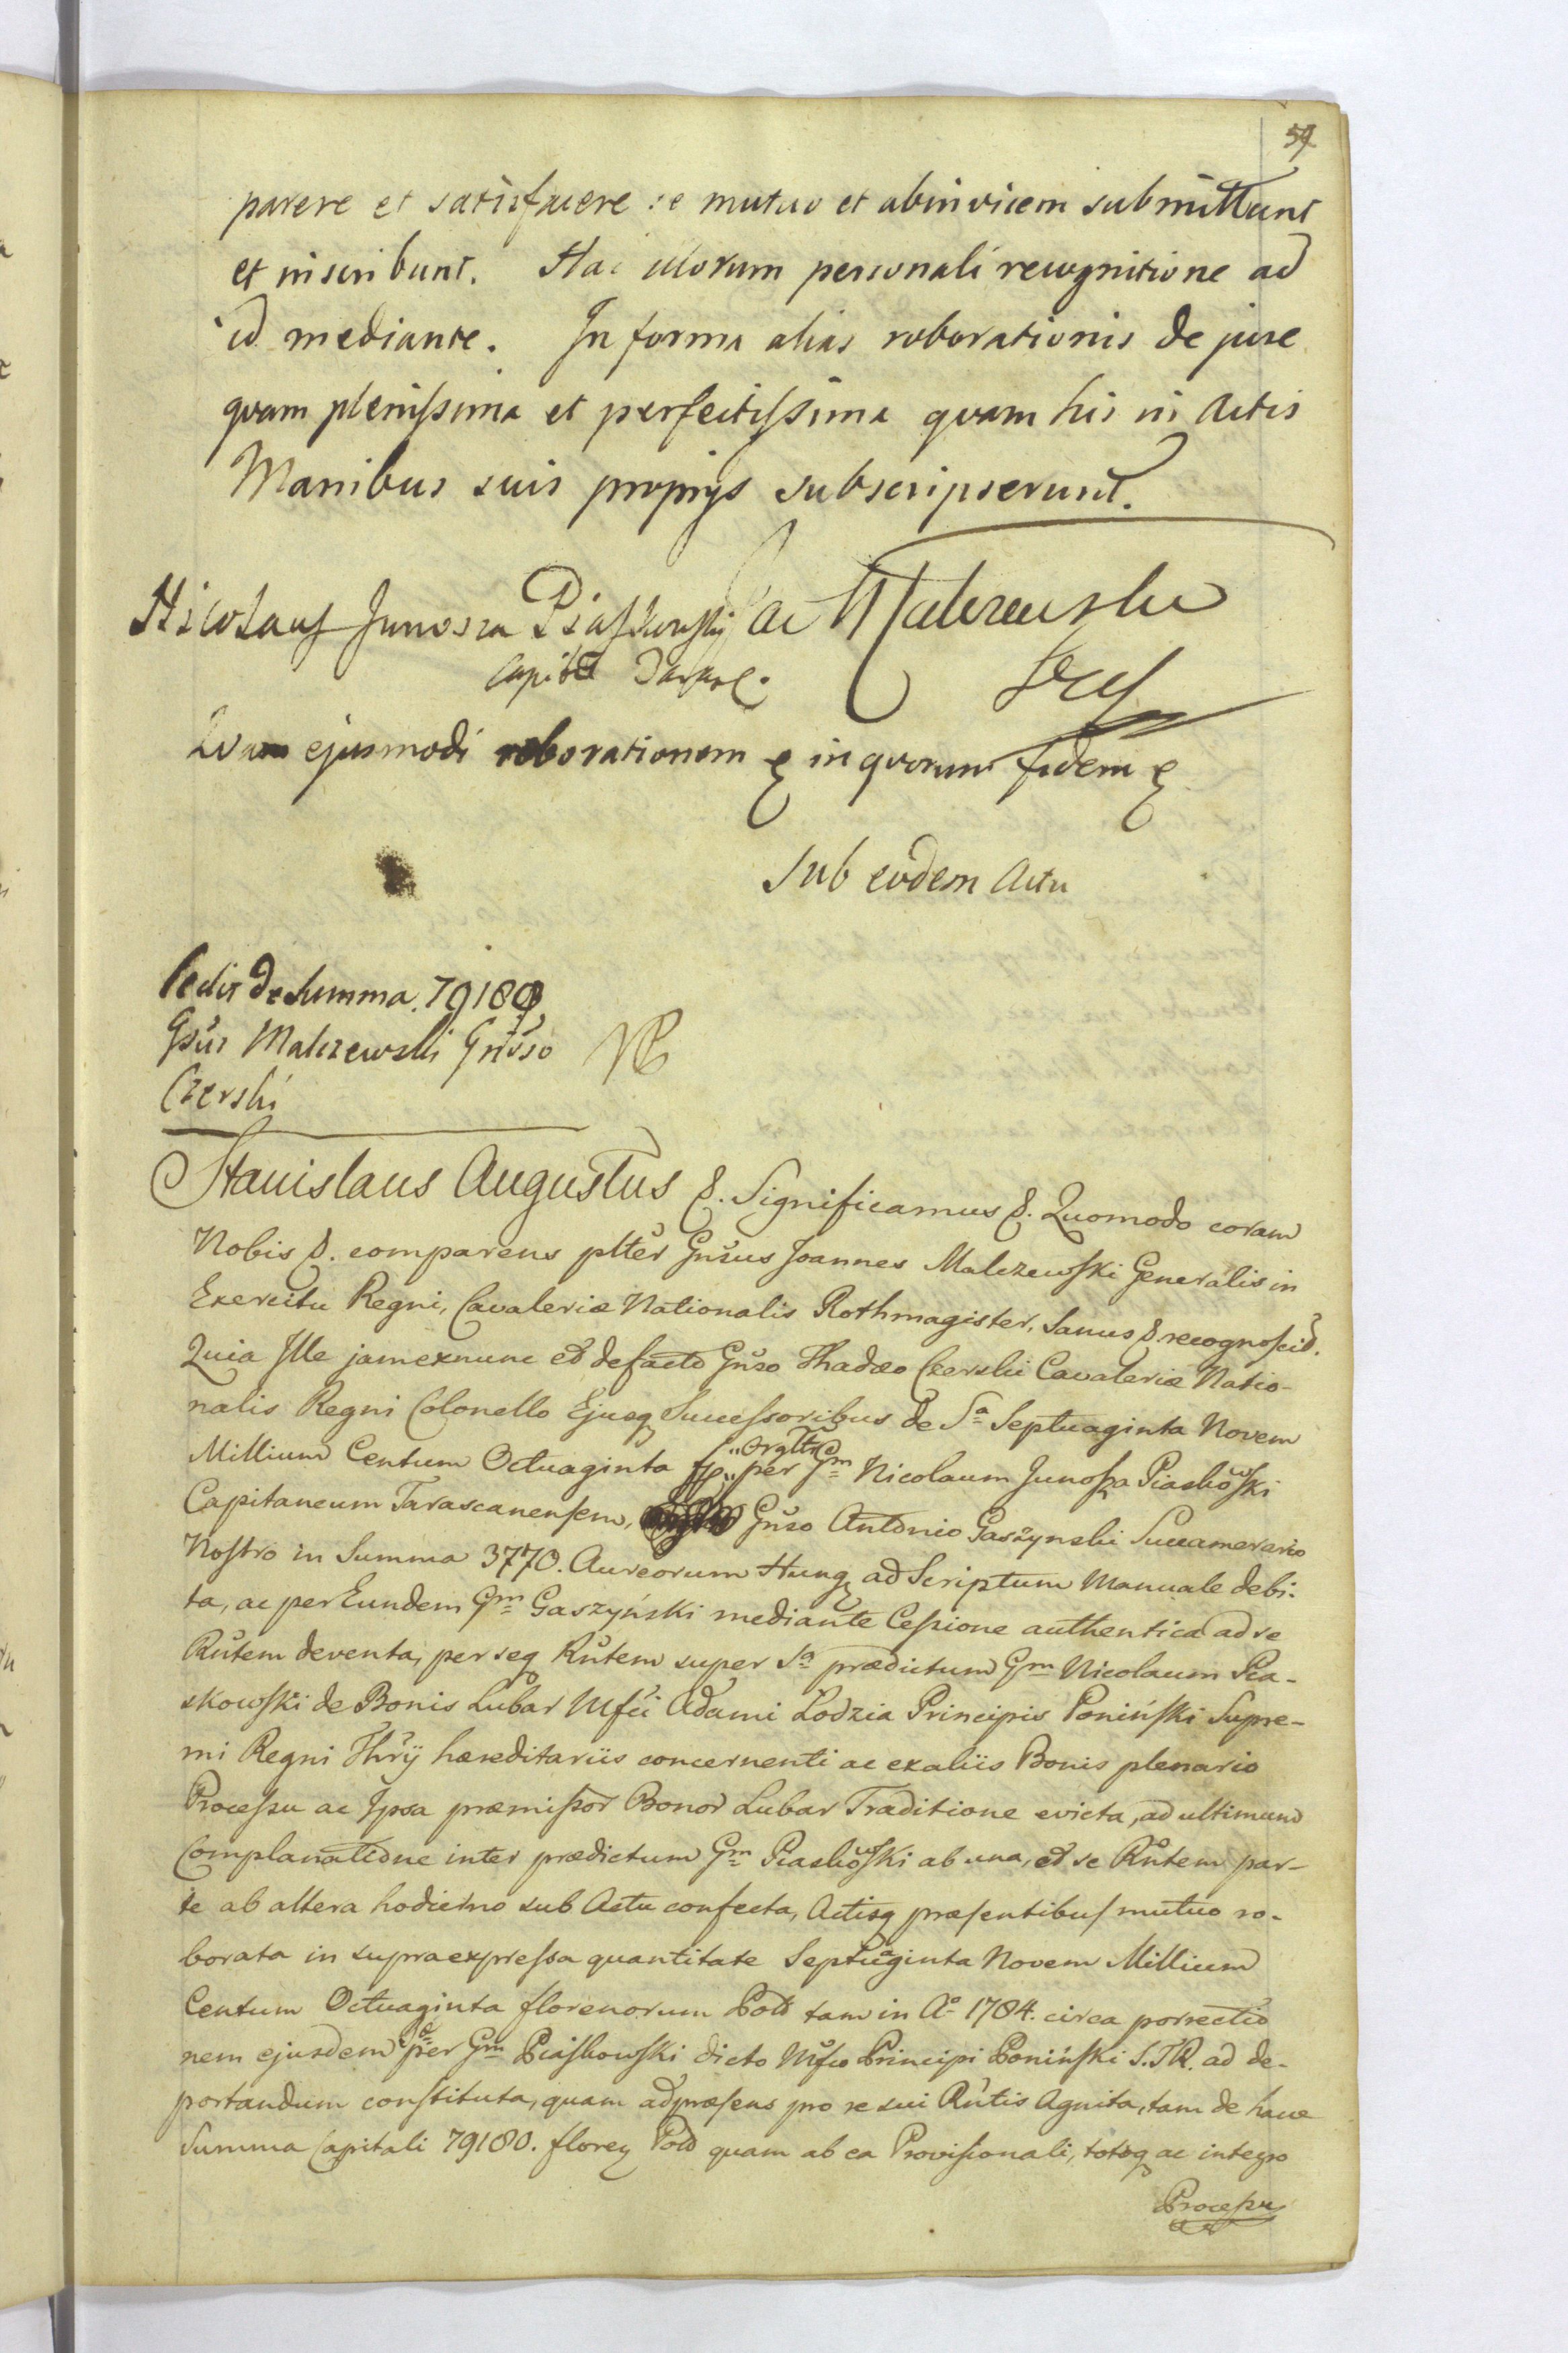 59
parere et satisfacere se mutuo et abinvicem submittunt
et inscribunt. Hac illorum personali recognitione ad
id mediante. In forma alias roborationis de jure
quam plenissima et perfectissima quam his in Actis
Manibus suis proprijs subscripserunt.
Nicolaus Junosza Piaskowski Malczewski
Capit
Quam ejusmodi roborationem & in quorum fidem &
Sub eodem Actu
Cedit de Summa 79180
Gsus Malczewski Gnoso
Czerski
Stanislaus Augustus &. Significamus &. Quomodo coram
Nobis &. comparens plter Gnsus Joannes Malczewski Generalis in
Exercitu Regni, Cavaleriæ Nationalis Rothmagister, Sanus &. recognoscit.
Quia Ille jam exnunc et defacto Gnso Thadæo Czerski Cavaleriæ Natio-
nalis Regni Colonello Ejusq Successoribus de Sa Septuaginta Novem
Millium Centum Octuaginta fp. orgltr per Gm Nicolaum Junosza Piaskowski
Capitaneum Tarascanensem, Gnso Antonio Gaszynski Succamerario
Nostro in Summa 3770. Aureorum Hung ad Scriptum Manuale debi-
ta, ac per Eundem Gm Gaszyński mediante Cessione authentica ad se
Rntem deventa, per seq Rntem super Sa prædictum Gm Nicolaum Pia-
skowski de Bonis Lubar Mfci Adami Łodzia Principis Poniński Supre-
mi Regni Thrij hæreditariis concernenti ac exaliis Bonis plenario
Processu ac Ipsa præmissor Bonor Lubar Traditione evicta, ad ultimum
Complanatione inter prædictum Gm Piaskowski ab una, et se Rntem par-
te ab altera hodierno sub Actu confecta, Actisq præsentibus mutuo ro-
borata in supraexpressa quantitate Septuaginta Novem Millium
Centum Octuaginta florenorum Pold tam in Ao 1784. circa porrectio
nem ejusdem per Gm Piaskowski dicto Mfco Principi Poniński S.T.R. ad de-
portandum constituta, quam adpræsens pro se sui Rntis Agnita, tam de hace
Summa Capitali 79180. floren Pold quam ab ea Provisionali, totoq ac integro
Processu